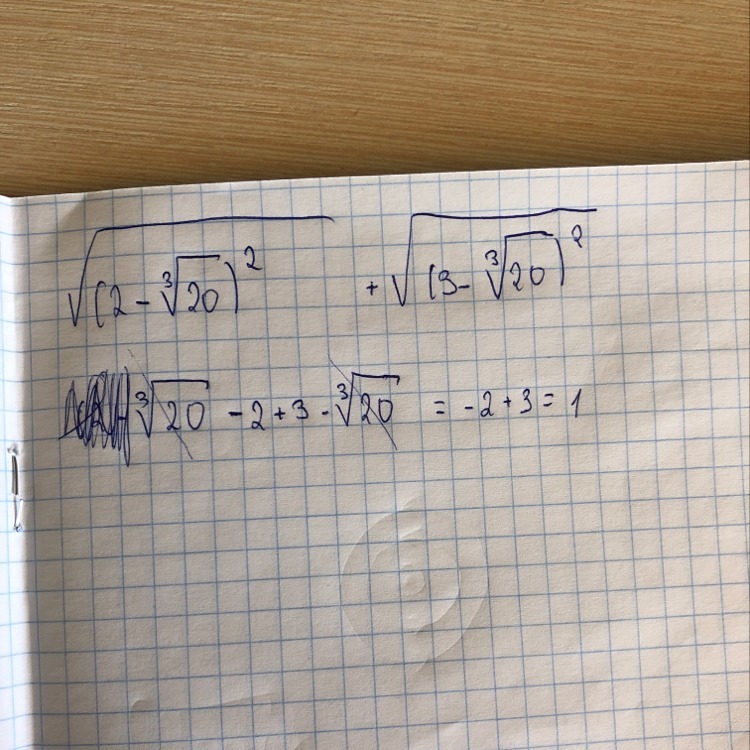 √(2 - ∛20)² + √(3 - ∛20)²
∛20 - 2 + 3 - ∛20 = -2 + 3 = 1